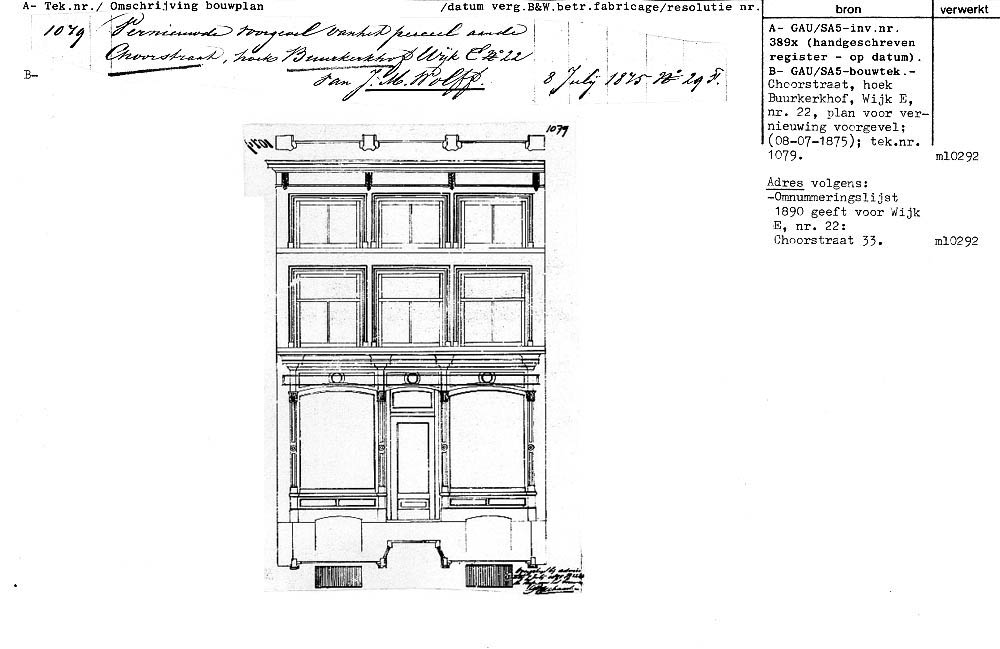 A- Tek.nr./ Omschrijving bouwplan /datum verg.B&W.betr.fabricage/resolutie nr.
1079 Vernieuwde voorgevel van het perceel aan de
Choorstraat, hoek Buurkerkhof Wijk E No 22
B- van J. M. Wolff. 8 July 1875 No 29 F.
bron verwerkt
A- GAU/SA5-inv.nr.
389x (handgeschreven
register - op datum).
B- GAU/SA5-bouwtek.-
Choorstraat, hoek
Buurkerkhof, Wijk E,
nr. 22, plan voor ver-
nieuwing voorgevel;
(08-07-1875); tek.nr.
1079. ml0292
Adres volgens:
-Omnummeringslijst
1890 geeft voor Wijk
E, nr. 22:
Choorstraat 33. ml0292
1079